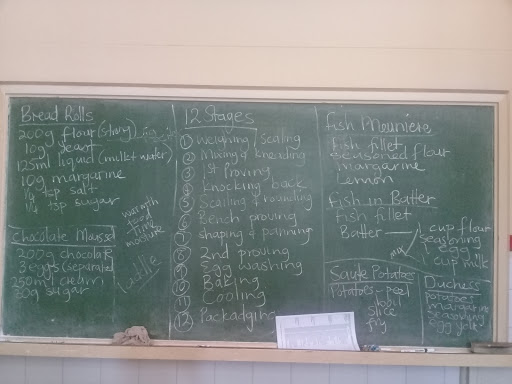 Bread Rolls
200g flour (strong)
10g yeast
125ml liquid (milk + water)
10g margarine
1/4 tsp salt
1/4 tsp sugar
warmth
food
time
moisture
Chocolate Mousse
200g chocolate
3 eggs (separated)
250ml cream
30g sugar
12 Stages
1 Weighing / Scaling
2 Mixing & kneading
3 1st Proving
4 Knocking back
5 Scalling & rounding
6 Bench proving
7 shaping & panning
8 2nd proving
9 Egg washing
10 Baking
11 Cooling
12 Packadging
Fish Meuniere
Fish fillet
seasoned flour
margarine
lemon
fish in Batter
fish fillet
Batter
1 cup flour
seasoning
1 egg
1 cup milk
mix
Saute Potatoes
Potatoes - peel
boil
slice
fry
Duchess
potatoes
margarine
seasoning
egg yolk